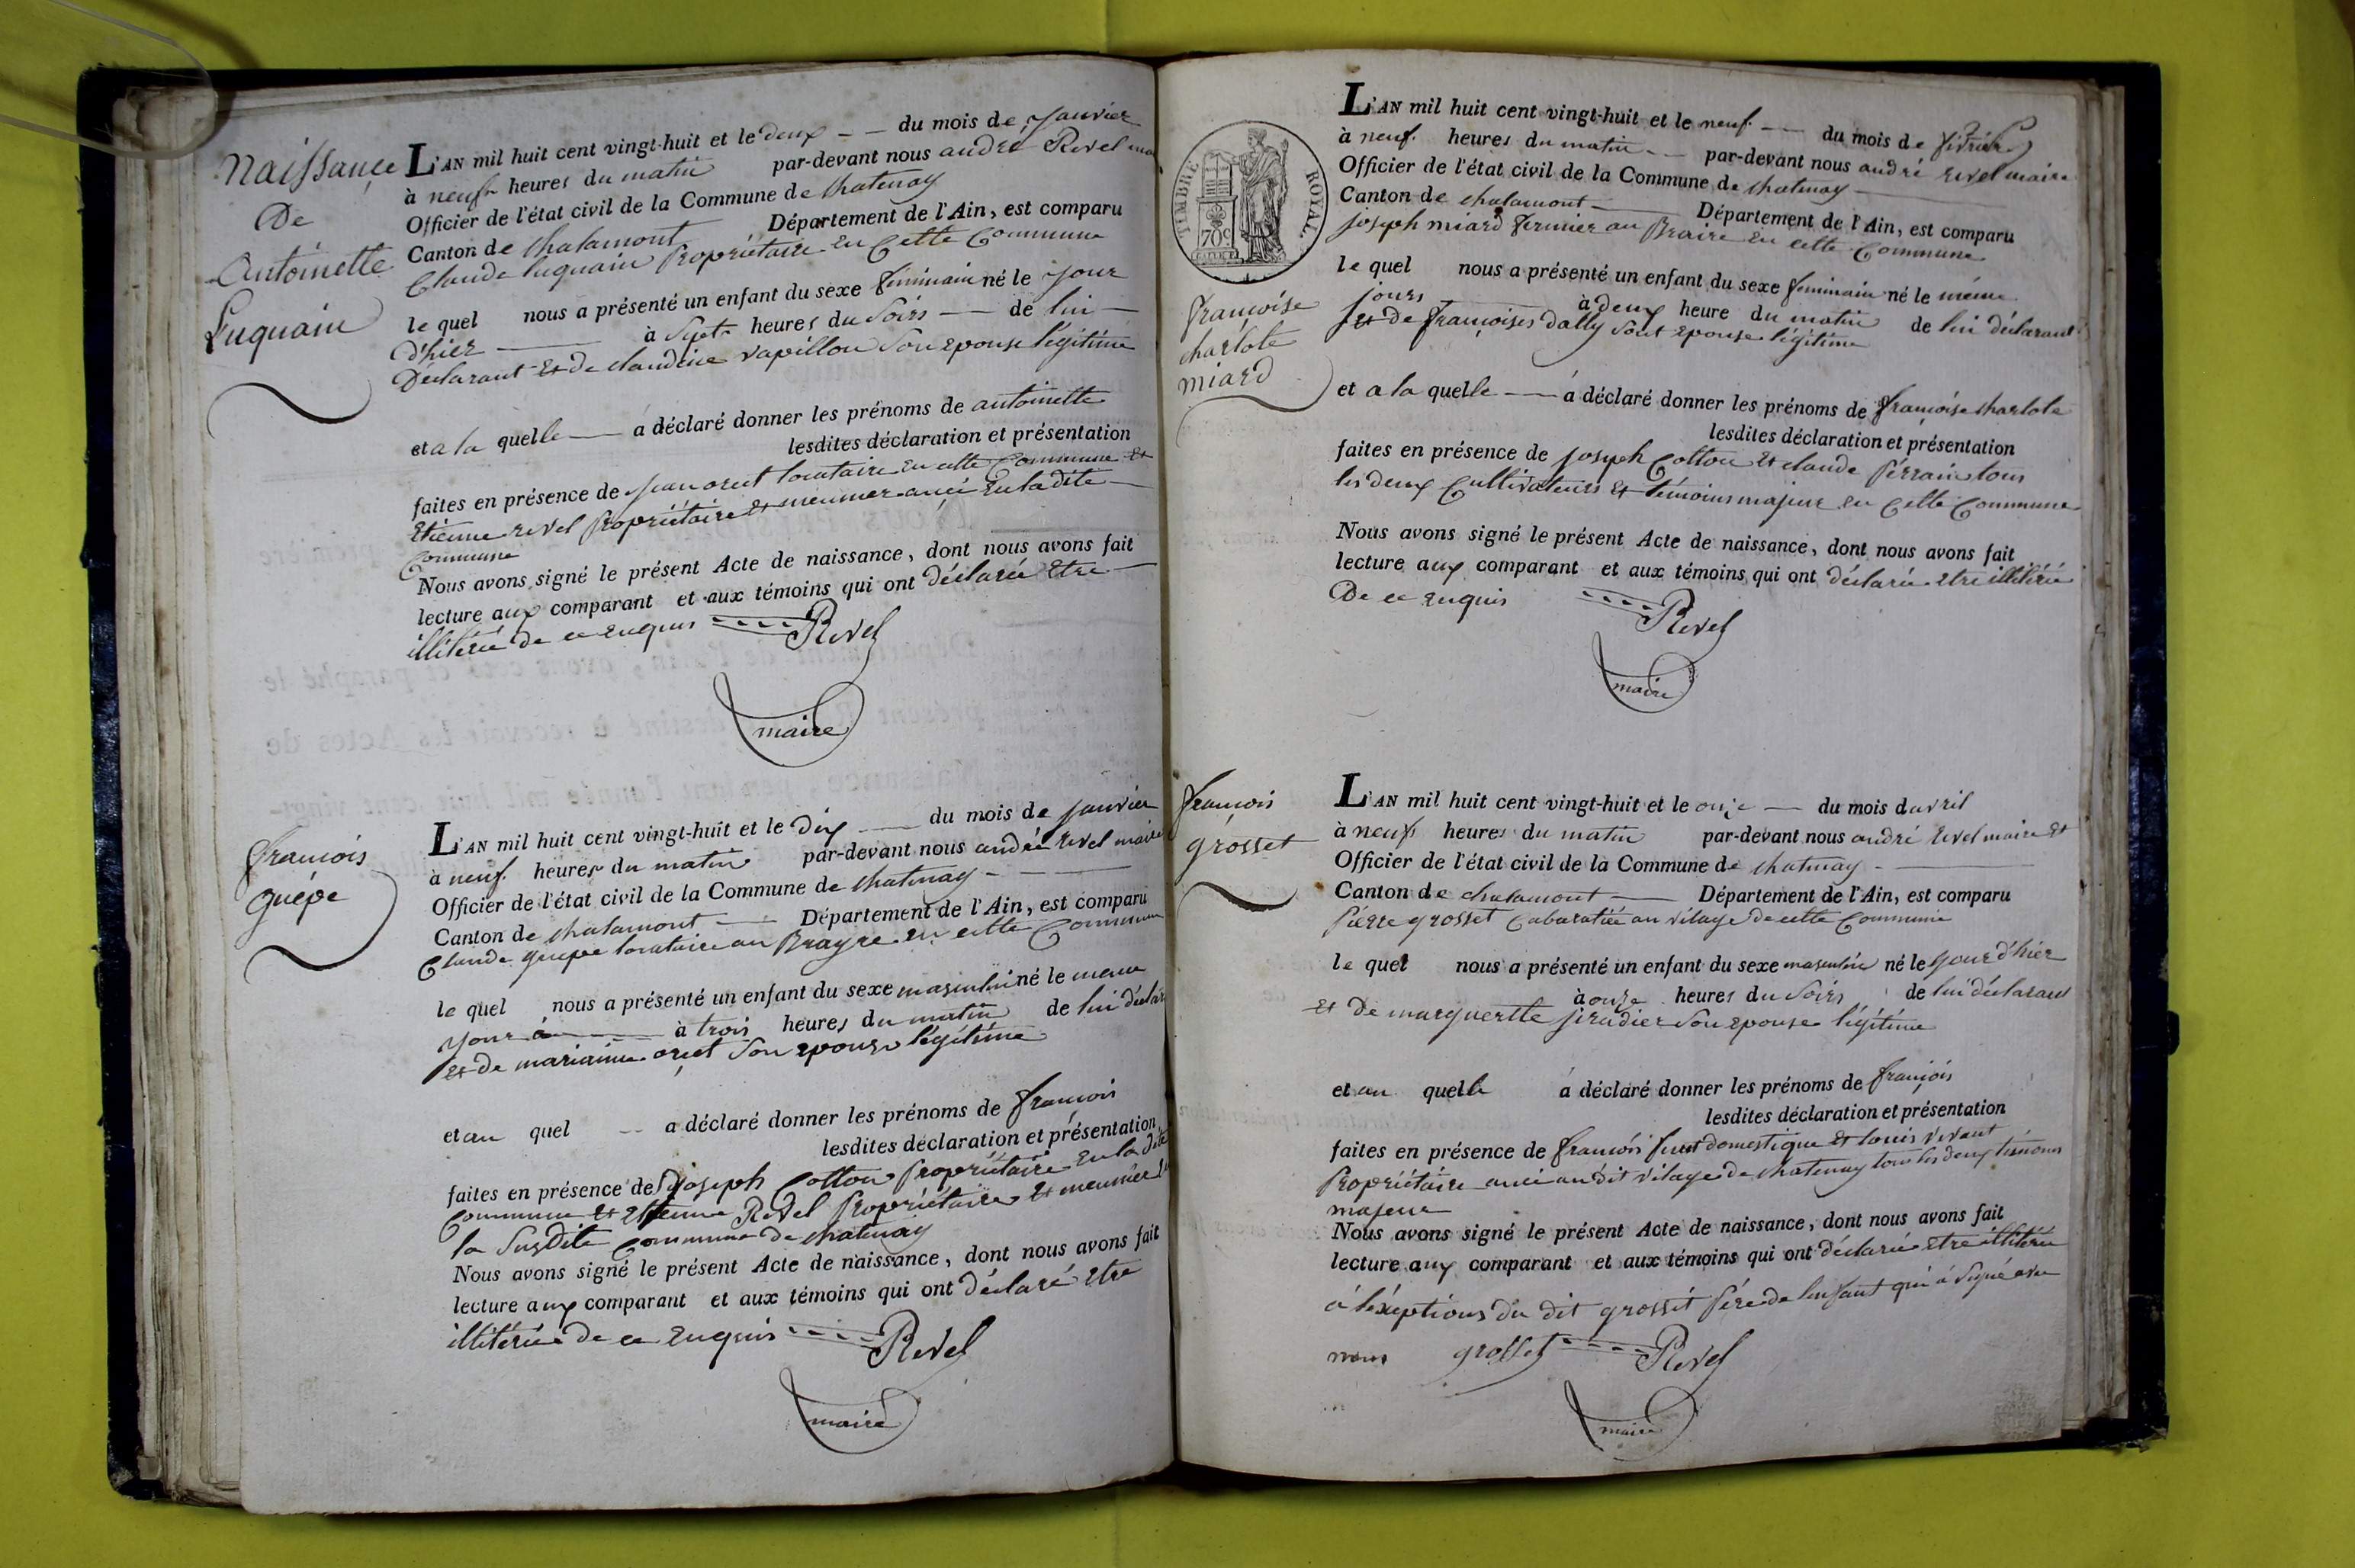 Naissance
De
Antoinette
Luquain
L'AN mil huit cent vingt-huit et le deux du mois de janvier
à neuf heures du matin par-devant nous andré Revel
Officier de l'état civil de la Commune de Chatenay
Canton de Chalamont Département de l'Ain, est comparu
Claude Luquain Propriétaire en Cette Commune
le quel nous a présenté un enfant du sexe feminain né le jour
d'hier à Sept heures du Soirs de lui
Déclarant Et de Claudine vapillon Son epouse légitime
et a la quelle a déclaré donner les prénoms de antoinette
lesdites déclaration et présentation
faites en présence de jean oret locataire en cette Commune Et
Etienne revel Propriétaire Et meunier en la dite
Commune
Nous avons signé le présent Acte de naissance, dont nous avons fait
lecture aux comparant et aux témoins qui ont déclarée Etre
illitérée de ce Enquis Revel
maire
françois
guépe
L'AN mil huit cent vingt-huit et le Dix du mois de janvier
à neuf heures du matin par-devant nous andré revel maire
Officier de l'état civil de la Commune de Chatenay
Canton de Chalamont Département de l'Ain, est comparu
Claude guepe locataire au Brayre en cette Commune
le quel nous a présenté un enfant du sexe masculin né le meme
jour à trois heures du matin de lui déclar
Et de marianne oret Son epouse légitime
et au quel a déclaré donner les prénoms de françois
lesdites déclaration et présentation
faites en présence de joseph Cotton Propriétaire En la dite
Commune Et Etienne Revel Propriétaire Et meunier
la Susdite Commune de Chatenay
Nous avons signé le présent Acte de naissance, dont nous avons fait
lecture aux comparant et aux témoins qui ont déclaré Etre
illitérée De ce Enquis Revel
maire
TIMBRE ROYAL
70c
françoise
charlote
miard
L'AN mil huit cent vingt-huit et le neuf du mois de février
à neuf heures du matin par-devant nous andré revel maire
Officier de l'état civil de la Commune de Chatenay
Canton de Chalamont Département de l'Ain, est comparu
joseph miard fermier au Braire en cette Commune
le quel nous a présenté un enfant du sexe feminain né le même
jours à deux heure du matin de lui déclarant
Et De françoises dally Sont epouse légitime
et a la quelle a déclaré donner les prénoms de françoise Charlote
lesdites déclaration et présentation
faites en présence de joseph Cotton Et claude Perrain tous
les deux Cultivateurs Et témoins majeur en Cette Commune
Nous avons signé le présent Acte de naissance, dont nous avons fait
lecture aux comparant et aux témoins qui ont déclarée Etre illitérée
De ce Enquis Revel
maire
françois
grosset
L'AN mil huit cent vingt-huit et le onze du mois davril
à neuf heures du matin par-devant nous andré revel maire Et
Officier de l'état civil de la Commune de Chatenay
Canton de Chalamont Département de l'Ain, est comparu
Pierre grosset Cabaratiée au vilage de cette Commune
le quel nous a présenté un enfant du sexe masculin né le jour d'hier
à onze heures du Soirs de lui déclarant
Et De marguertte Son epouse légitime
et au quelle a déclaré donner les prénoms de françois
lesdites déclaration et présentation
faites en présence de françois domestique Et louis vivant
Propriétaire au dit vilage de Chatenay tous les deux témoins
majeur
Nous avons signé le présent Acte de naissance, dont nous avons fait
lecture aux comparant et aux témoins qui ont déclarée Etre illitérée
à l'éxeptions Du dit grosset Pére de lenfant qui à Signé avec
nous grosset Revel
maire